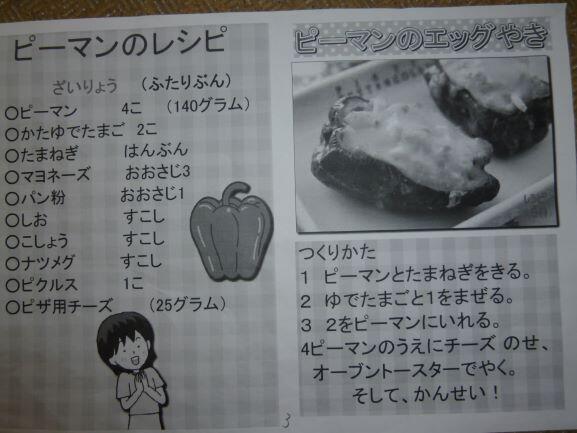 ピーマンのレシピ
ざいりょう (ふたりぶん)
○ピーマン 4こ (140グラム)
○かたゆでたまご 2こ
○たまねぎ はんぶん
○マヨネーズ おおさじ3
○パン粉 おおさじ1
○しお すこし
○こしょう すこし
○ナツメグ すこし
○ピクルス 1こ
○ピザ用チーズ (25グラム)
ピーマンのエッグやき
つくりかた
1 ピーマンとたまねぎをきる。
2 ゆでたまごと1をまぜる。
3 2をピーマンにいれる。
4ピーマンのうえにチーズ のせ、
オーブントースターでやく。
そして、かんせい!
3